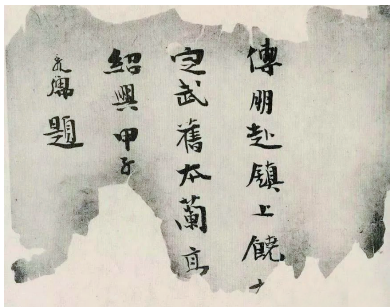 傅朋赴鎮上饒
定武舊本蘭
紹興甲子
題